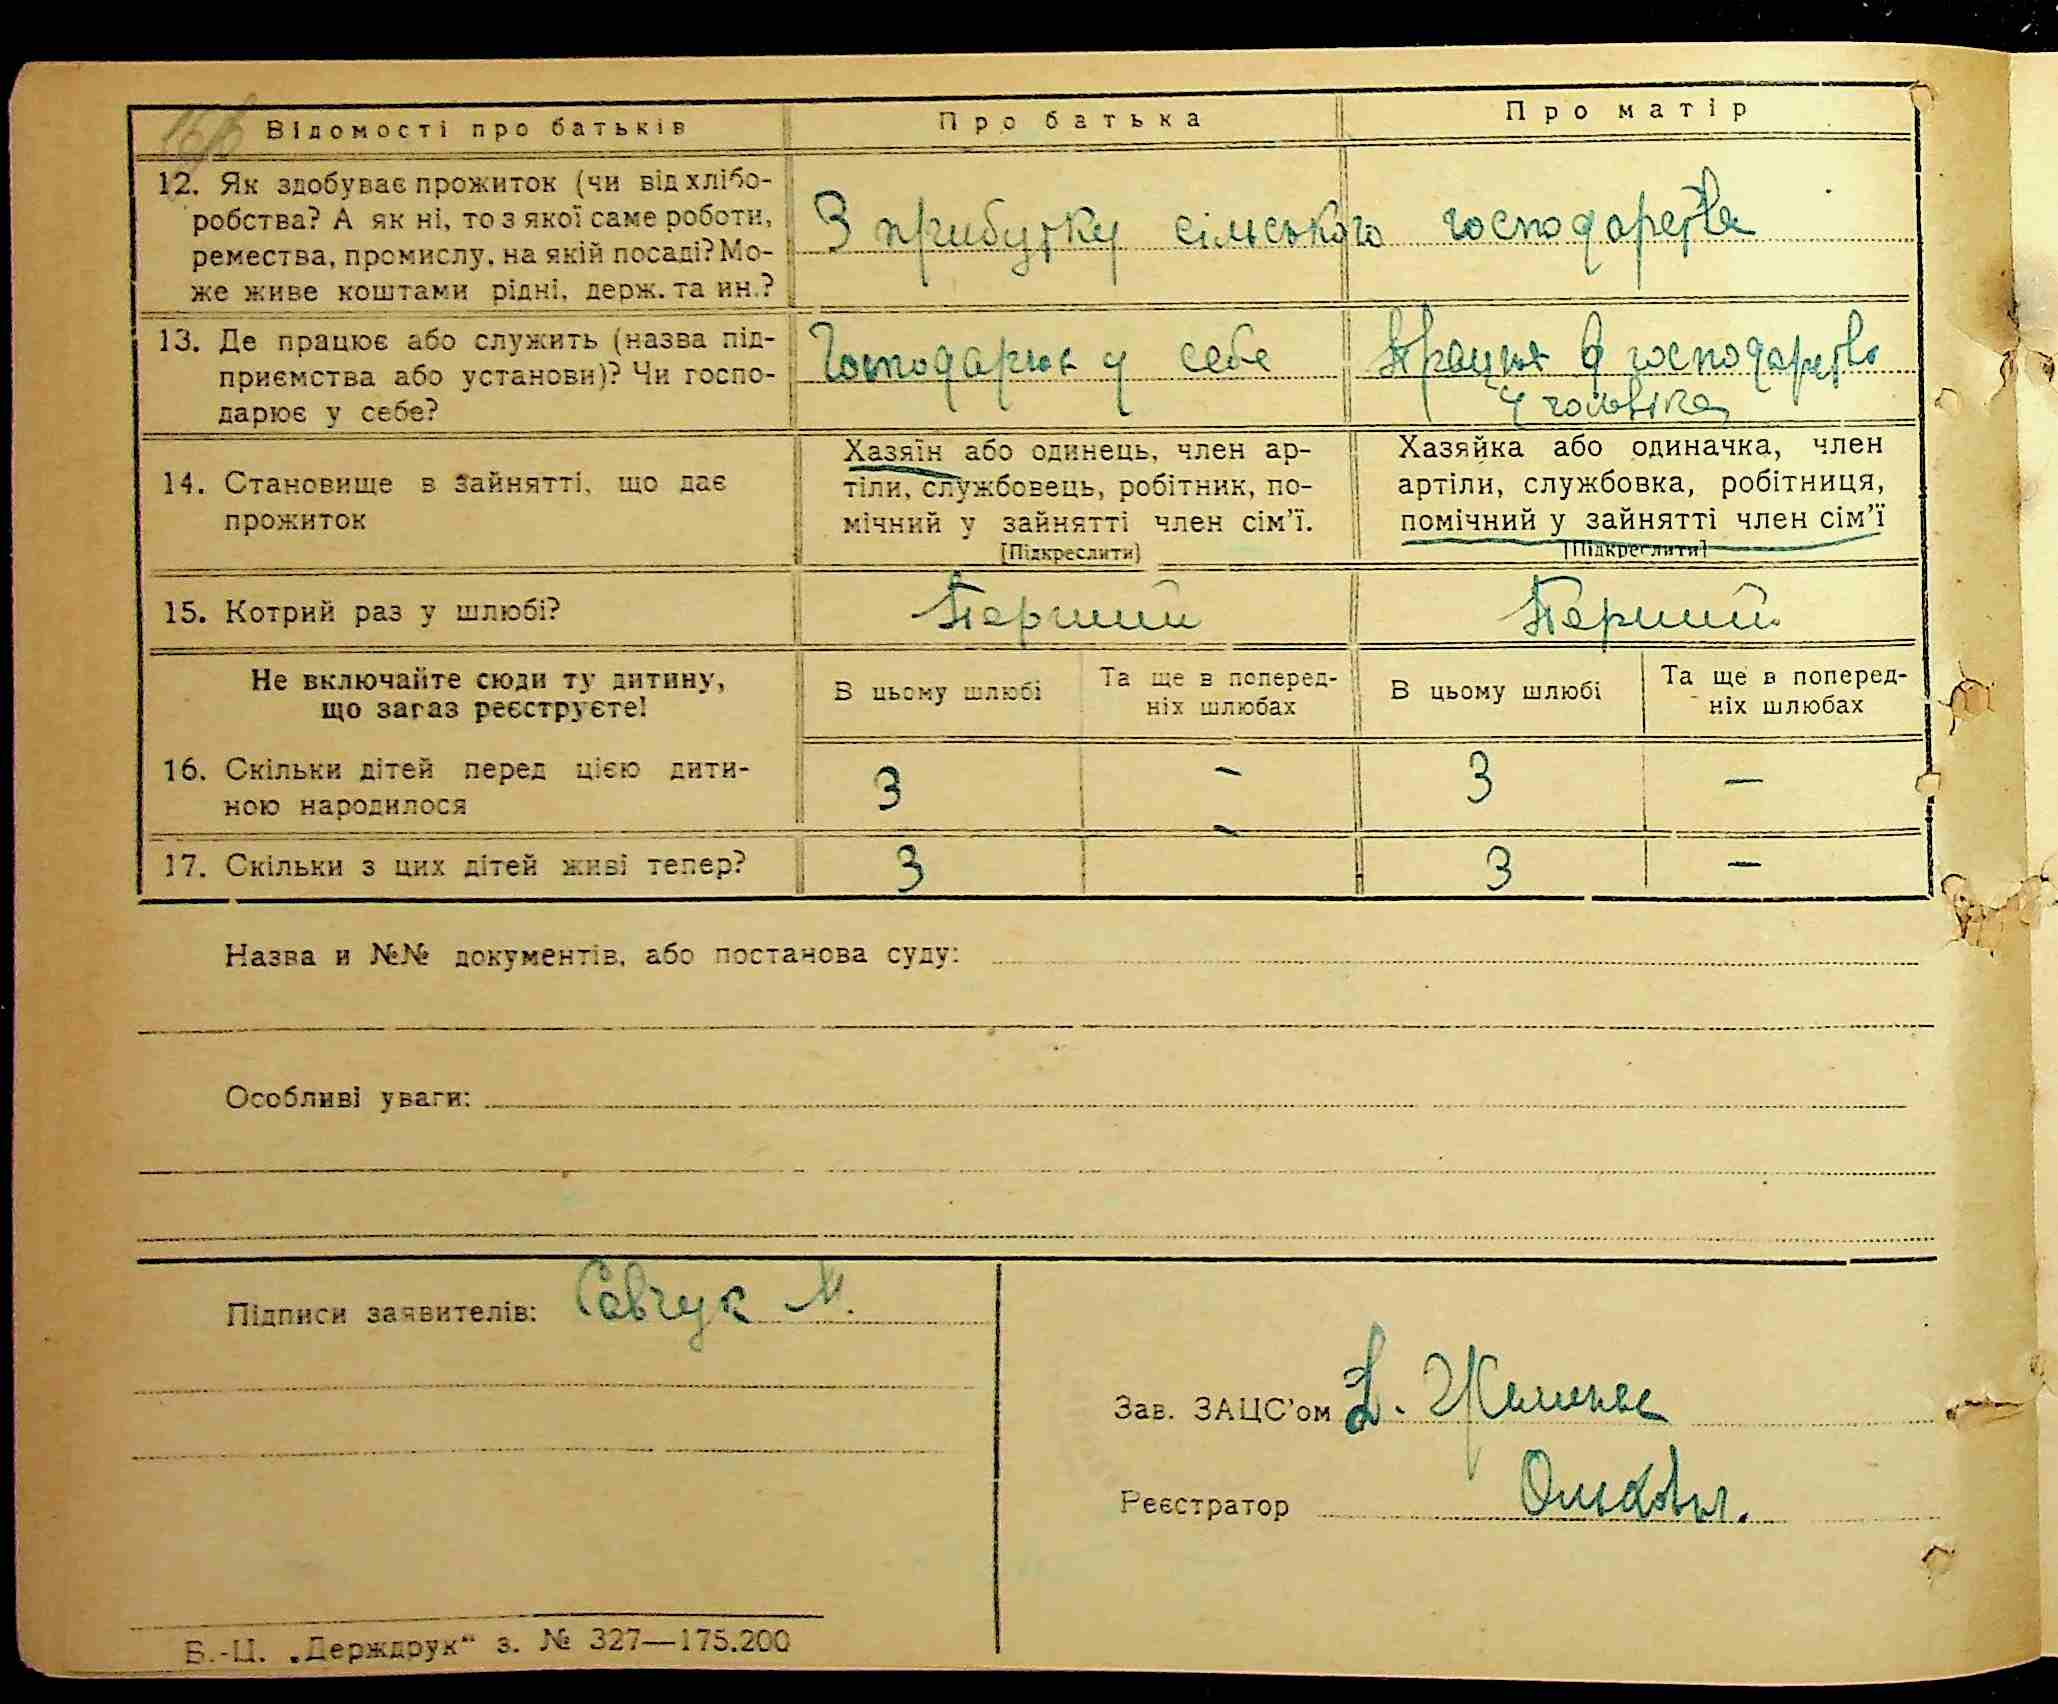 Відомості про батьків
Про батька
Про матір
12. Як здобуває прожиток (чи від хлібо-
робства? А як ні, то з якої саме роботи,
ремества, промислу, на якій посаді? Мо-
же живе коштами рідні, держ. та ин.?
З прибутку сільського господарства
13. Де працює або служить (назва під-
приємства або установи)? Чи госпо-
дарює у себе?
Господарює у себе
Працює в господарстві
у чоловіка
14. Становище в зайнятті, що дає
прожиток
Хазяїн або одинець, член ар-
тіли, службовець, робітник, по-
мічний у зайнятті член сім'ї.
[Підкреслити]
Хазяйка або одиначка, член
артіли, службовка, робітниця,
помічний у зайнятті член сім'ї
[Підкреслити]
15. Котрий раз у шлюбі?
Перший
Перший
Не включайте сюди ту дитину,
що зараз реєструєте!
В цьому шлюбі
Та ще в поперед-
ніх шлюбах
В цьому шлюбі
Та ще в поперед-
ніх шлюбах
16. Скільки дітей перед цією дити-
ною народилося
3 – 3 –
17. Скільки з цих дітей живі тепер?
3 – 3 –
Назва и №№ документів, або постанова суду:
Особливі уваги:
Підписи заявителів: Савчук М.
Зав. ЗАЦС'ом
Реєстратор
Б.-Ц. „Держдрук“ з. № 327—175.200